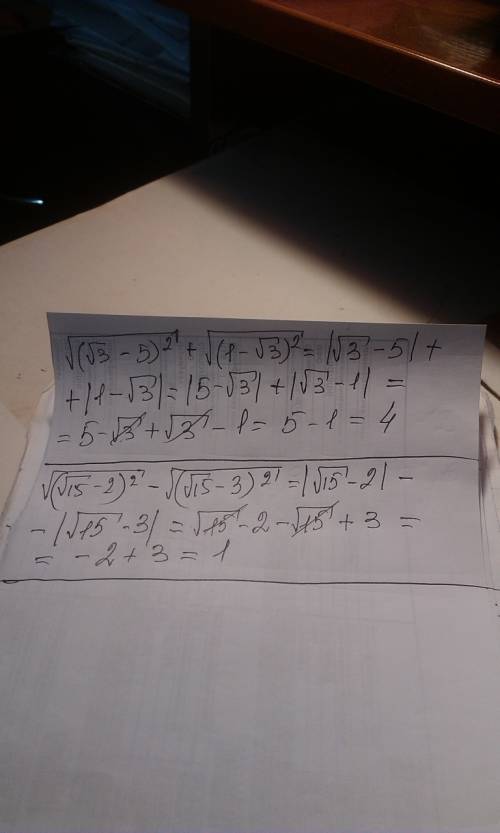 √(√3 - 5)² + √(1 - √3)² = |√3 - 5| +
+ |1 - √3| = |5 - √3| + |√3 - 1| =
= 5 - √3 + √3 - 1 = 5 - 1 = 4
√(√15 - 2)² - √(√15 - 3)² = |√15 - 2| -
- |√15 - 3| = √15 - 2 - √15 + 3 =
= - 2 + 3 = 1